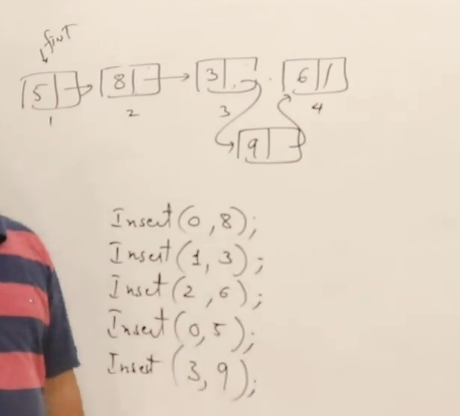 first
5 8 3 6 /
1 2 3 4
9
Insert(0,8);
Insert(1,3);
Insert(2,6);
Insert(0,5);
Insert(3,9);